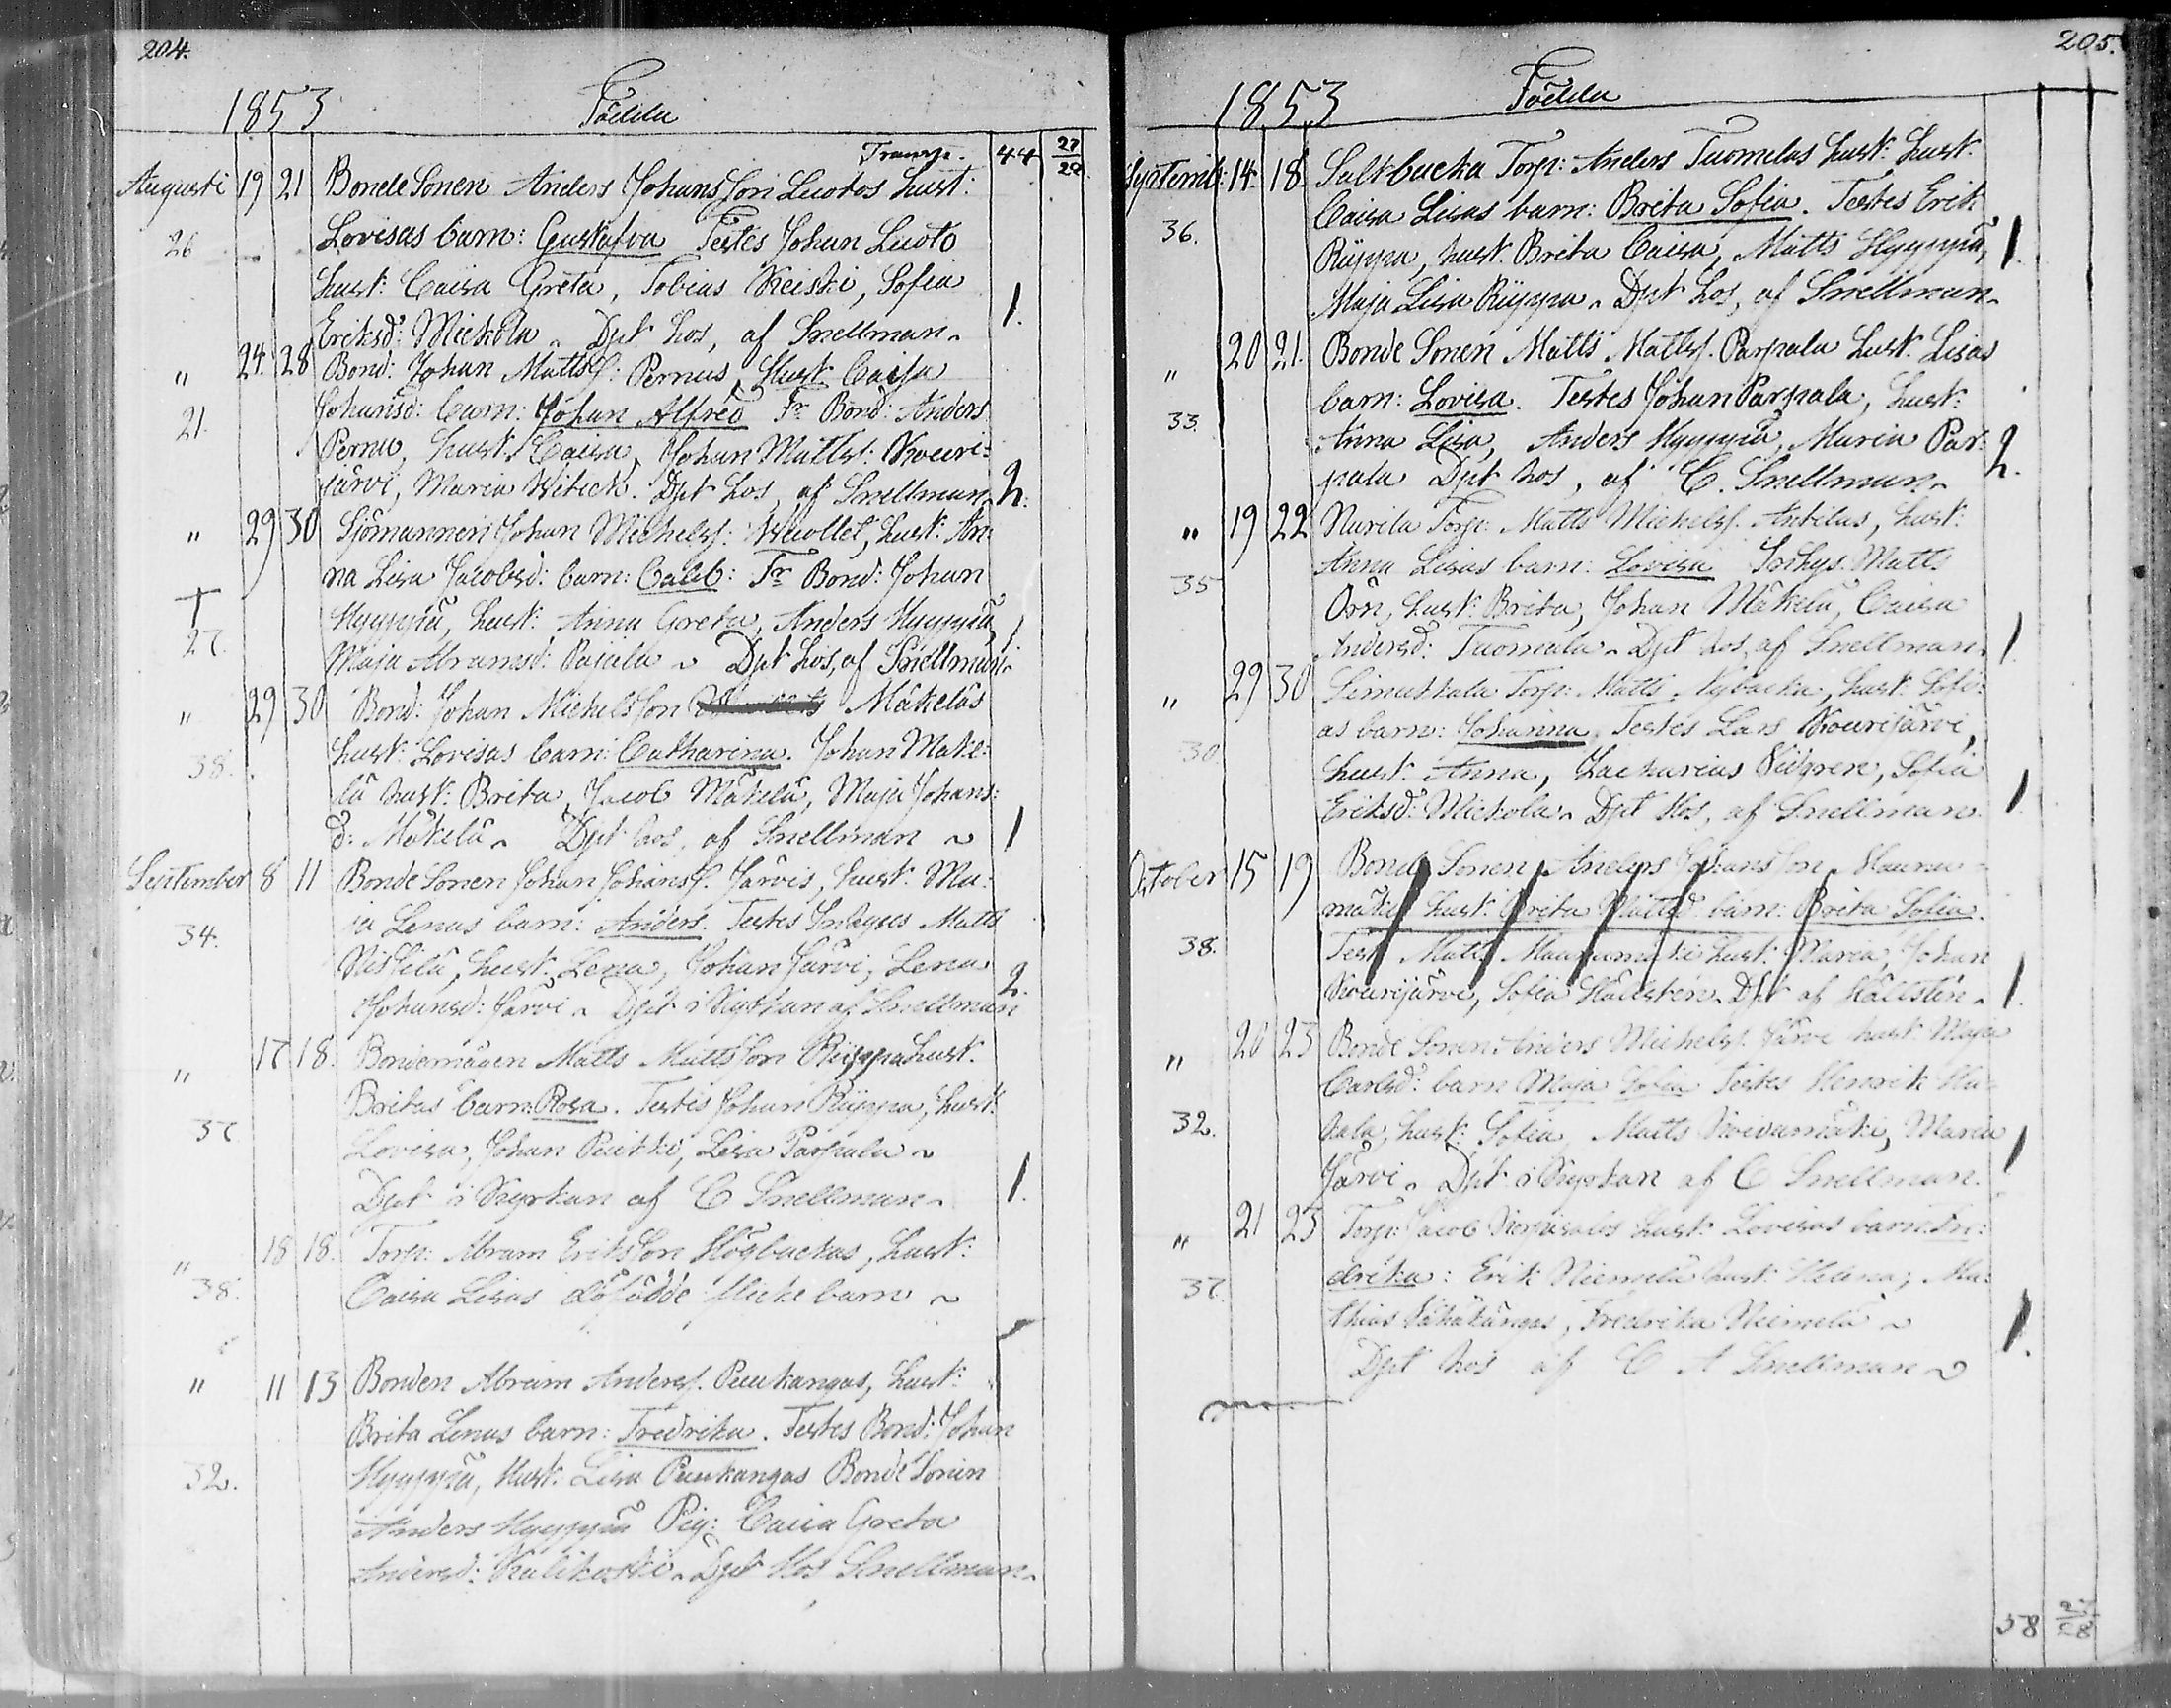 204.
1853 Födda
Transp. 44 27/28
Augusti 19 21 Bonde Sonen Anders Johansson Luotos hust:
26 Lovisas barn: Gustafva Testes Johan Luoto
hust: Caisa Greta, Tobias Keiski, Sofia
Eriksd: Mickola. Dpt hos, af Snellman. 1.
" 24 28 Bond: Johan Mattss: Pernus, Hust. Caisa
21. Johansd: barn: Johan Alfred Tr Bond: Anders
Pernu, hust. Caisa, Johan Mattss: Koure-
järvi, Maria Witick. Dpt hos, af Snellman. 2.
" 29 30 Sjömannen Johan Michelss: hust. An:
na Lisa Jacobsd: barn: Caleb: Tr Bond: Johan
Hyyppiä, hust: Anna Greta, Anders Hyyppiä
27. Maja Abramsd: Dpt hos, af Snellman. 1
" 29 30 Bond: Johan Michelsson Mäkeläs
38. hust: Lovisas barn: Catharina. Johan Make-
lä hust: Brita, Jacob Mäkelä, Maja Johans:
d: Mäkelä. Dpt hos, af Snellman 1
September 8 11 Bonde Sonen Johan Johanss. Järvis, hust. Ma:
34. ja Lenas barn: Anders. Testes Matts
hust. Lena, Johan Järvi, Lena
Johansd: Järvi. Dpt i Kyrkan af Snellman 2.
" 17 18. Bondemågen Matts Mattsson Rüppa hust.
37 Britas barn: Rosa. Testis Johan Rüppa, hust:
Lovisa, Johan Lisa Parpala
Dpt i Kyrkan af C Snellman. 1.
" 18 18. Torp: Abram Eriksson Högbackas, hust:
38. Caisa Lisas döfödde flicke barn
" 11 13 Bonden Abram Anderss. Puukangas, hust:
Brita Lenas barn: Fredrika. Testes Bond: Johan
32. Hyyppiä, Hust: Lisa Puukangas Bonde Sonen
Anders Hyyppiä Pig: Caisa Greta
Andersd: Kalikoski. Dpt Hos Snellman.
205.
1853 Födda
Septemb: 14. 18. Saltbacka Torp: Anders Tuomelas hust: hust.
36. Caisa Lisas barn: Brita Sofia. Testes Erik
Rüppa, hust. Brita Caisa, Matts Hyyppiä, 1.
Maja Lisa Rüppa. Dpt hos, af Snellman.
" 20 21. Bonde Sonen Matts Mattss. Parpala hust. Lisas
33. barn: Lovisa. Testes Johan Parpala, hust:
Anna Lisa, Anders Hyyppiä, Maria Par-
pala Dpt hos, af C. Snellman. 2.
" 19 22 Torp: Matts Michelss. Antilas, hust:
35 Anna Lisas barn: Lovisa Matts
Örn, hust: Brita, Johan Mäkelä, Caisa
Andersd: Tuomala. Dpt hos, af Snellman. 1.
" 29 30 Torp: Matts Nybacka, hust: Sofi-
30 as barn: Johanna, Testes Lars Kourijärvi,
hust. Anna, Zacharias Sofia
Eriksd: Mickola. Dpt Hos, af Snellman. 1.
October 15 19 Bonde Sonen Anders Johansson Maunu-
mäkis hust. Brita Mattsd barn: Brita Sofia.
38. Test Matts Maunumäki hust: Maria, Johan
Kourijärvi, Sofia Hällsten. Dpt af Hällstén. 1.
" 20 23 Bonde Sonen Anders Michelss. Järvi hust. Maja
Carlsd: barn Maja Sofia Testes Henrik Ha-
32. kala, hust: Sofia, Matts Koivumäki, Maria
Järvi. Dpt i Kyrkan af C Snellman. 1
" 21 23 Torp: Jacob hust. Lovisas barn: Fre:
37. drika: Erik Niemelä hust. Helena, Ma:
thias Vähäkangas, Fredrika Niemelä
Dpt hos af C A Snellman 1.
58 27/28